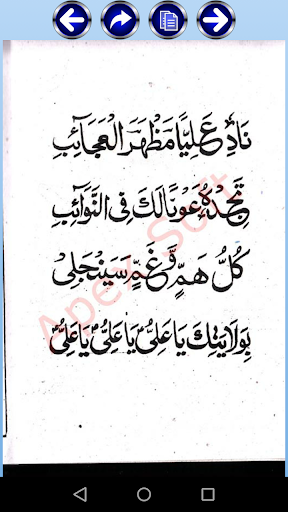 نَادِ عَلِيًّا مَظْهَرَ الْعَجَائِبِ
تَجِدْهُ عَوْنًا لَكَ فِی النَّوَائِبِ
كُلُّ هَمٍّ وَّغَمٍّ سَيَنْجَلِی
بِوِلَايَتِكَ يَا عَلِیُّ يَا عَلِیُّ يَا عَلِیُّ
Apex Soft